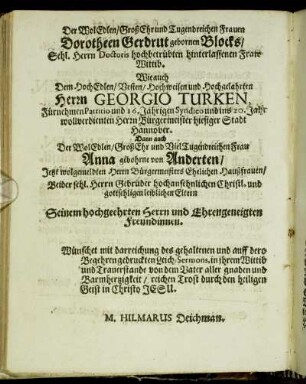 Der WolEdlen/ GroßEhr und Tugendreichen Frauen
Dorotheen Gerdrut gebornen Blocks/
Sehl. Herrn Doctoris hochbetrübten hinterlassenen Fraw
Wittib.
Wie auch
Dem HochEdlen/ Vesten/ Hochweisen und Hochgelahrten
Herrn GEORGIO TURKEN,
Fürnehmen Patritio und 16. Jährigen Syndico und ins 20. Jahr
wollverdienten Herrn Bürgermeister hiesiger Stadt
Hannover.
Dann auch
Der WolEdlen/ GroßEhr und VielTugendreichen Frau
Anna gebohrne von Anderten/
Jetzt wolgemeldten Herrn Bürgermeisters Ehelichen Haußfrauen/
Beider sehl. Herrn Gebrüder hochansehnlichen Christl. und
gottsehligen leiblichen Eltern
Seinem hochgeehrten Herrn und Ehrengeneigten
Freundinnen.
Wünschet mit darreichung des gehaltenen und auff dero
Begehren gedruckten Leich-Sermons, in ihrem Wittib
und Trauerstande von dem Vater aller gnaden und
Barmhertzigkeit/ reichen Trost durch den heiligen
Geist in Christo JESU.
M. HILMARUS Deichman.